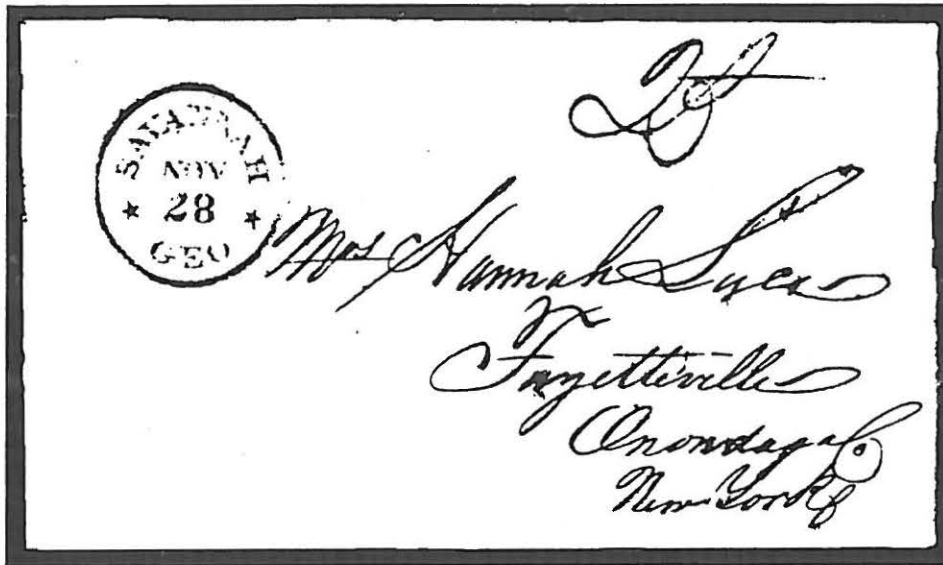 SAVANNAH
NOV
28
GEO
25
Mrs Hannah
Fayetteville
Onondaga Co
New York